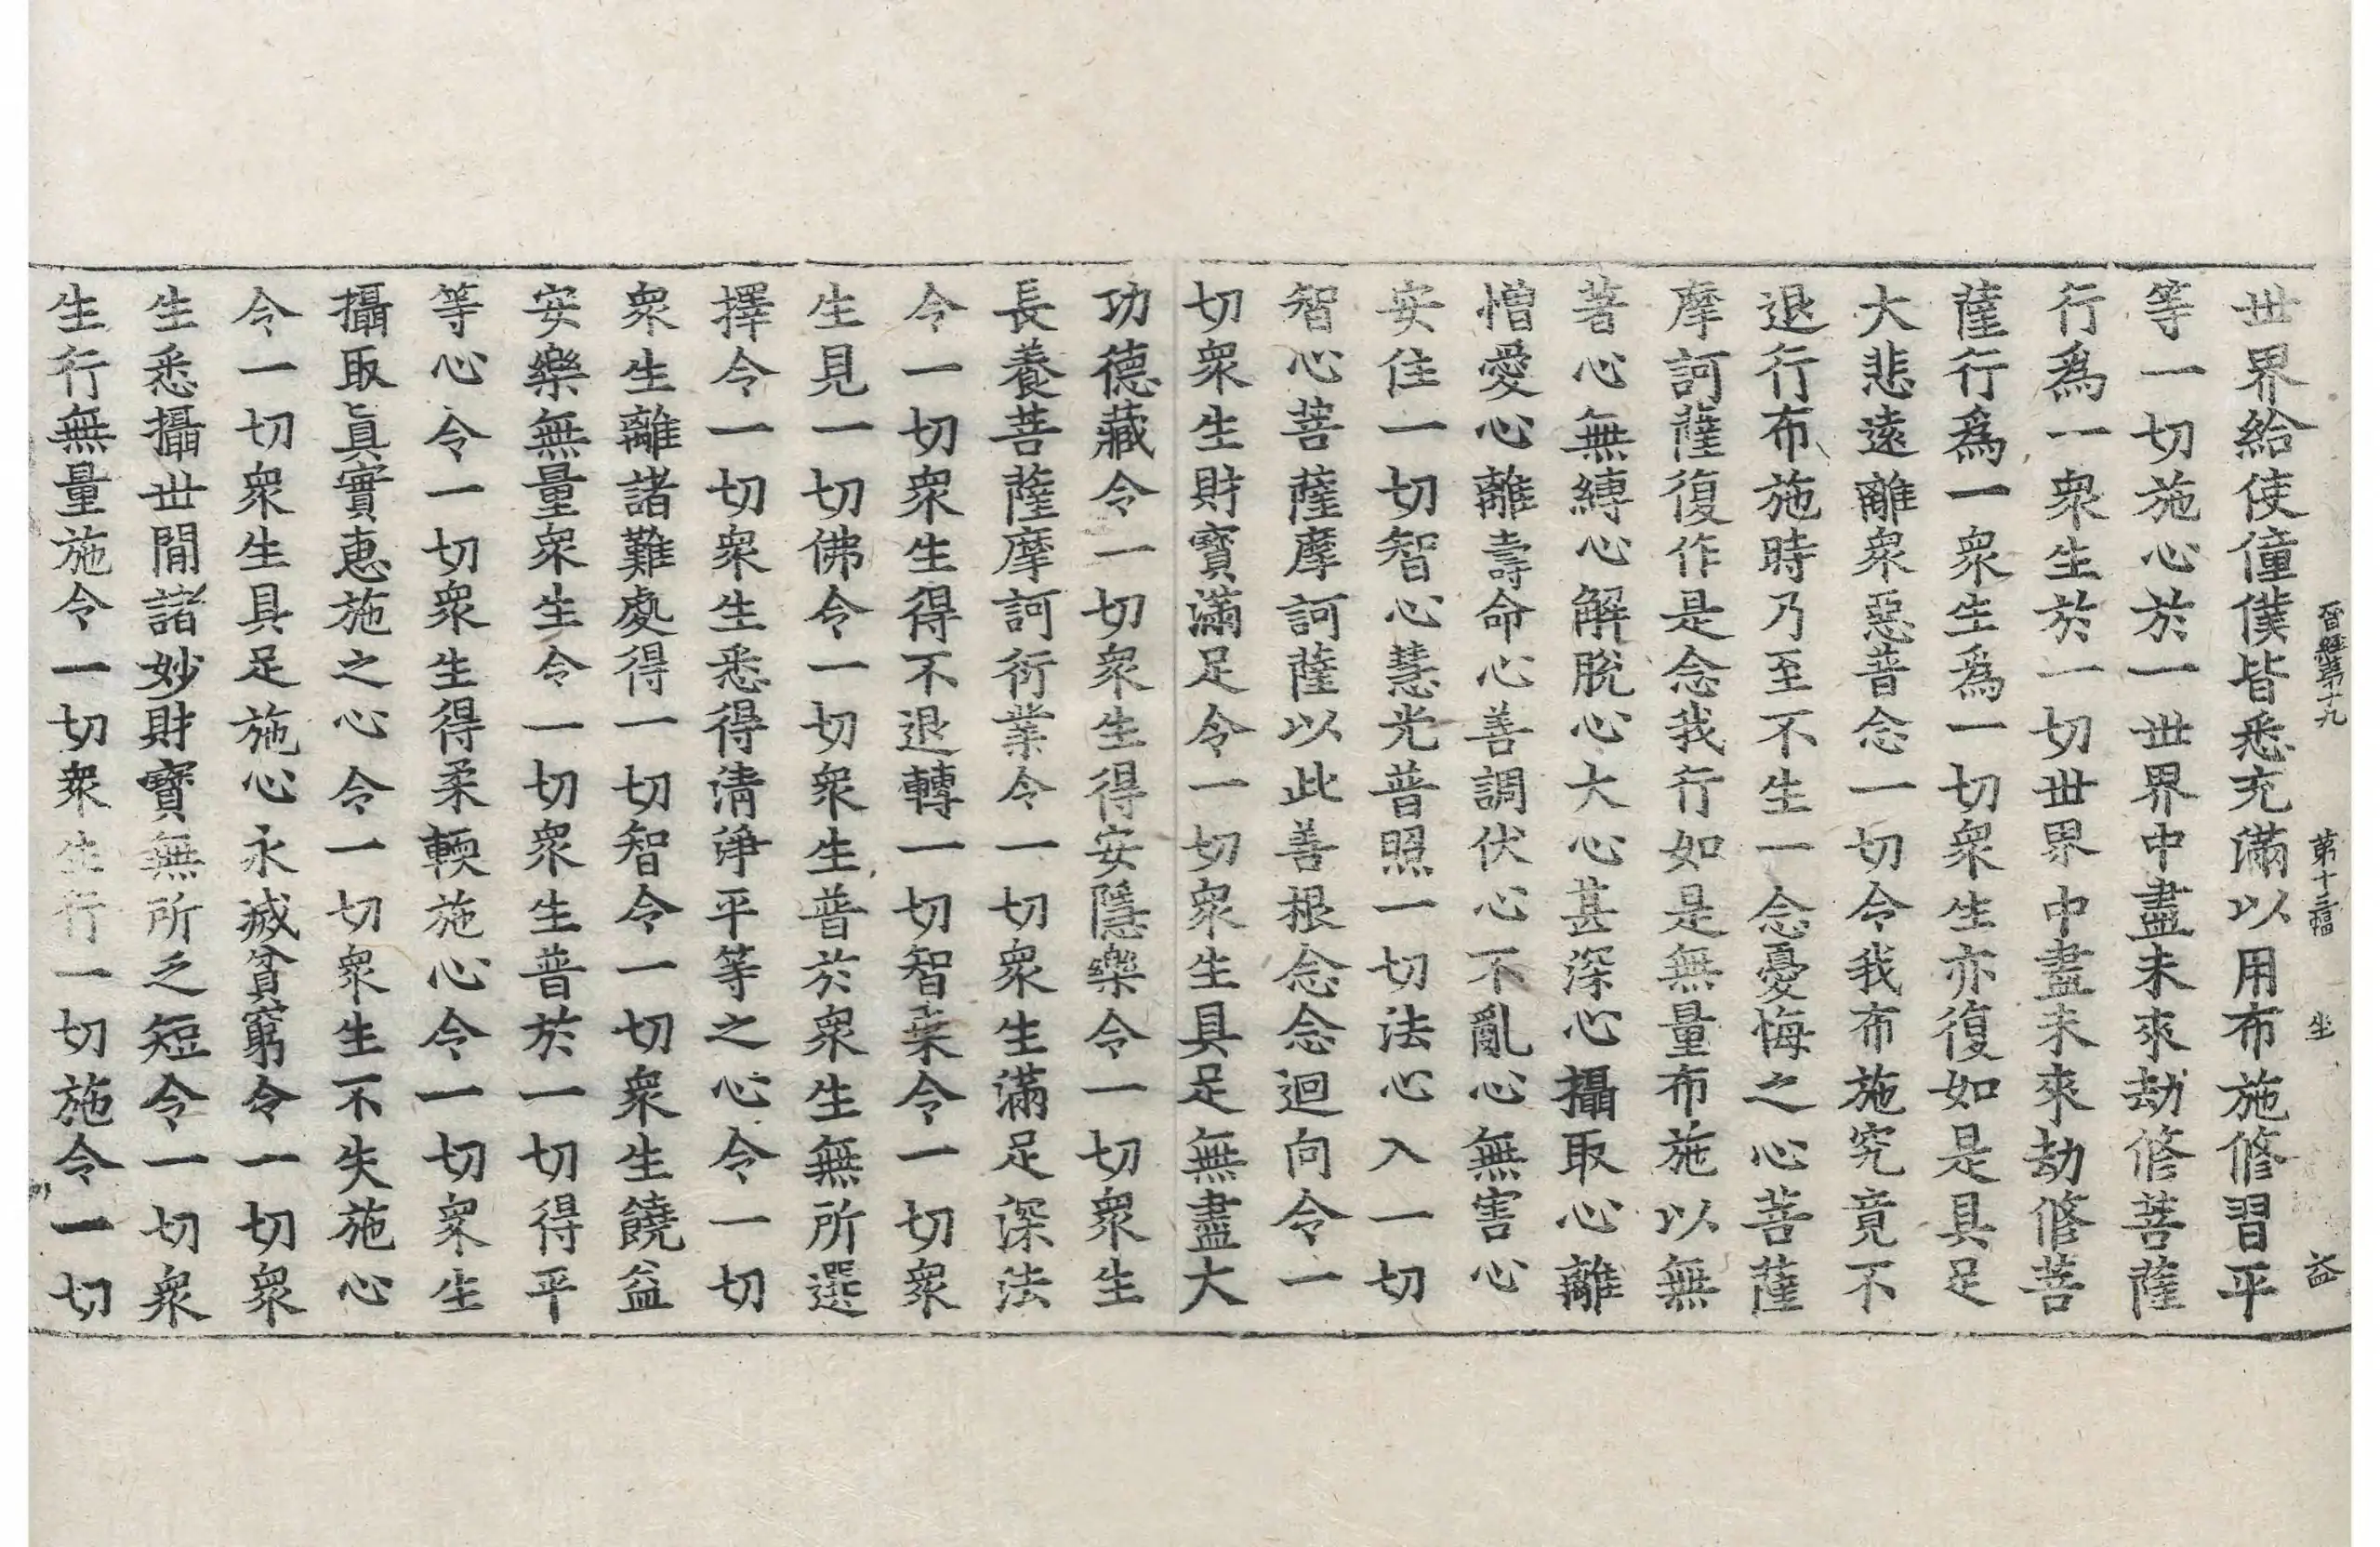 晉經第十九 第十三幅 坐 益
世界給使僮僕皆悉充滿以用布施修習平
等一切施心於一世界中盡未來劫修菩薩
行爲一衆生於一切世界中盡未來劫修菩
薩行爲一衆生爲一切衆生亦復如是具足
大悲遠離衆惡普念一切令我布施究竟不
退行布施時乃至不生一念憂悔之心菩薩
摩訶薩復作是念我行如是無量布施以無
著心無縛心解脫心大心甚深心攝取心離
憎愛心離壽命心善調伏心不亂心無害心
安住一切智心慧光普照一切法心入一切
智心菩薩摩訶薩以此善根念念迴向令一
切衆生財寶滿足令一切衆生具足無盡大
功德藏令一切衆生得安隱樂令一切衆生
長養菩薩摩訶衍業令一切衆生滿足深法
令一切衆生得不退轉一切智乘令一切衆
生見一切佛令一切衆生普於衆生無所選
擇令一切衆生悉得清淨平等之心令一切
衆生離諸難處得一切智令一切衆生饒益
安樂無量衆生令一切衆生普於一切得平
等心令一切衆生得柔軟施心令一切衆生
攝取眞實惠施之心令一切衆生不失施心
令一切衆生具足施心永滅貧窮令一切衆
生悉攝世閒諸妙財寶無所乏短令一切衆
生行無量施令一切衆生行一切施令一切